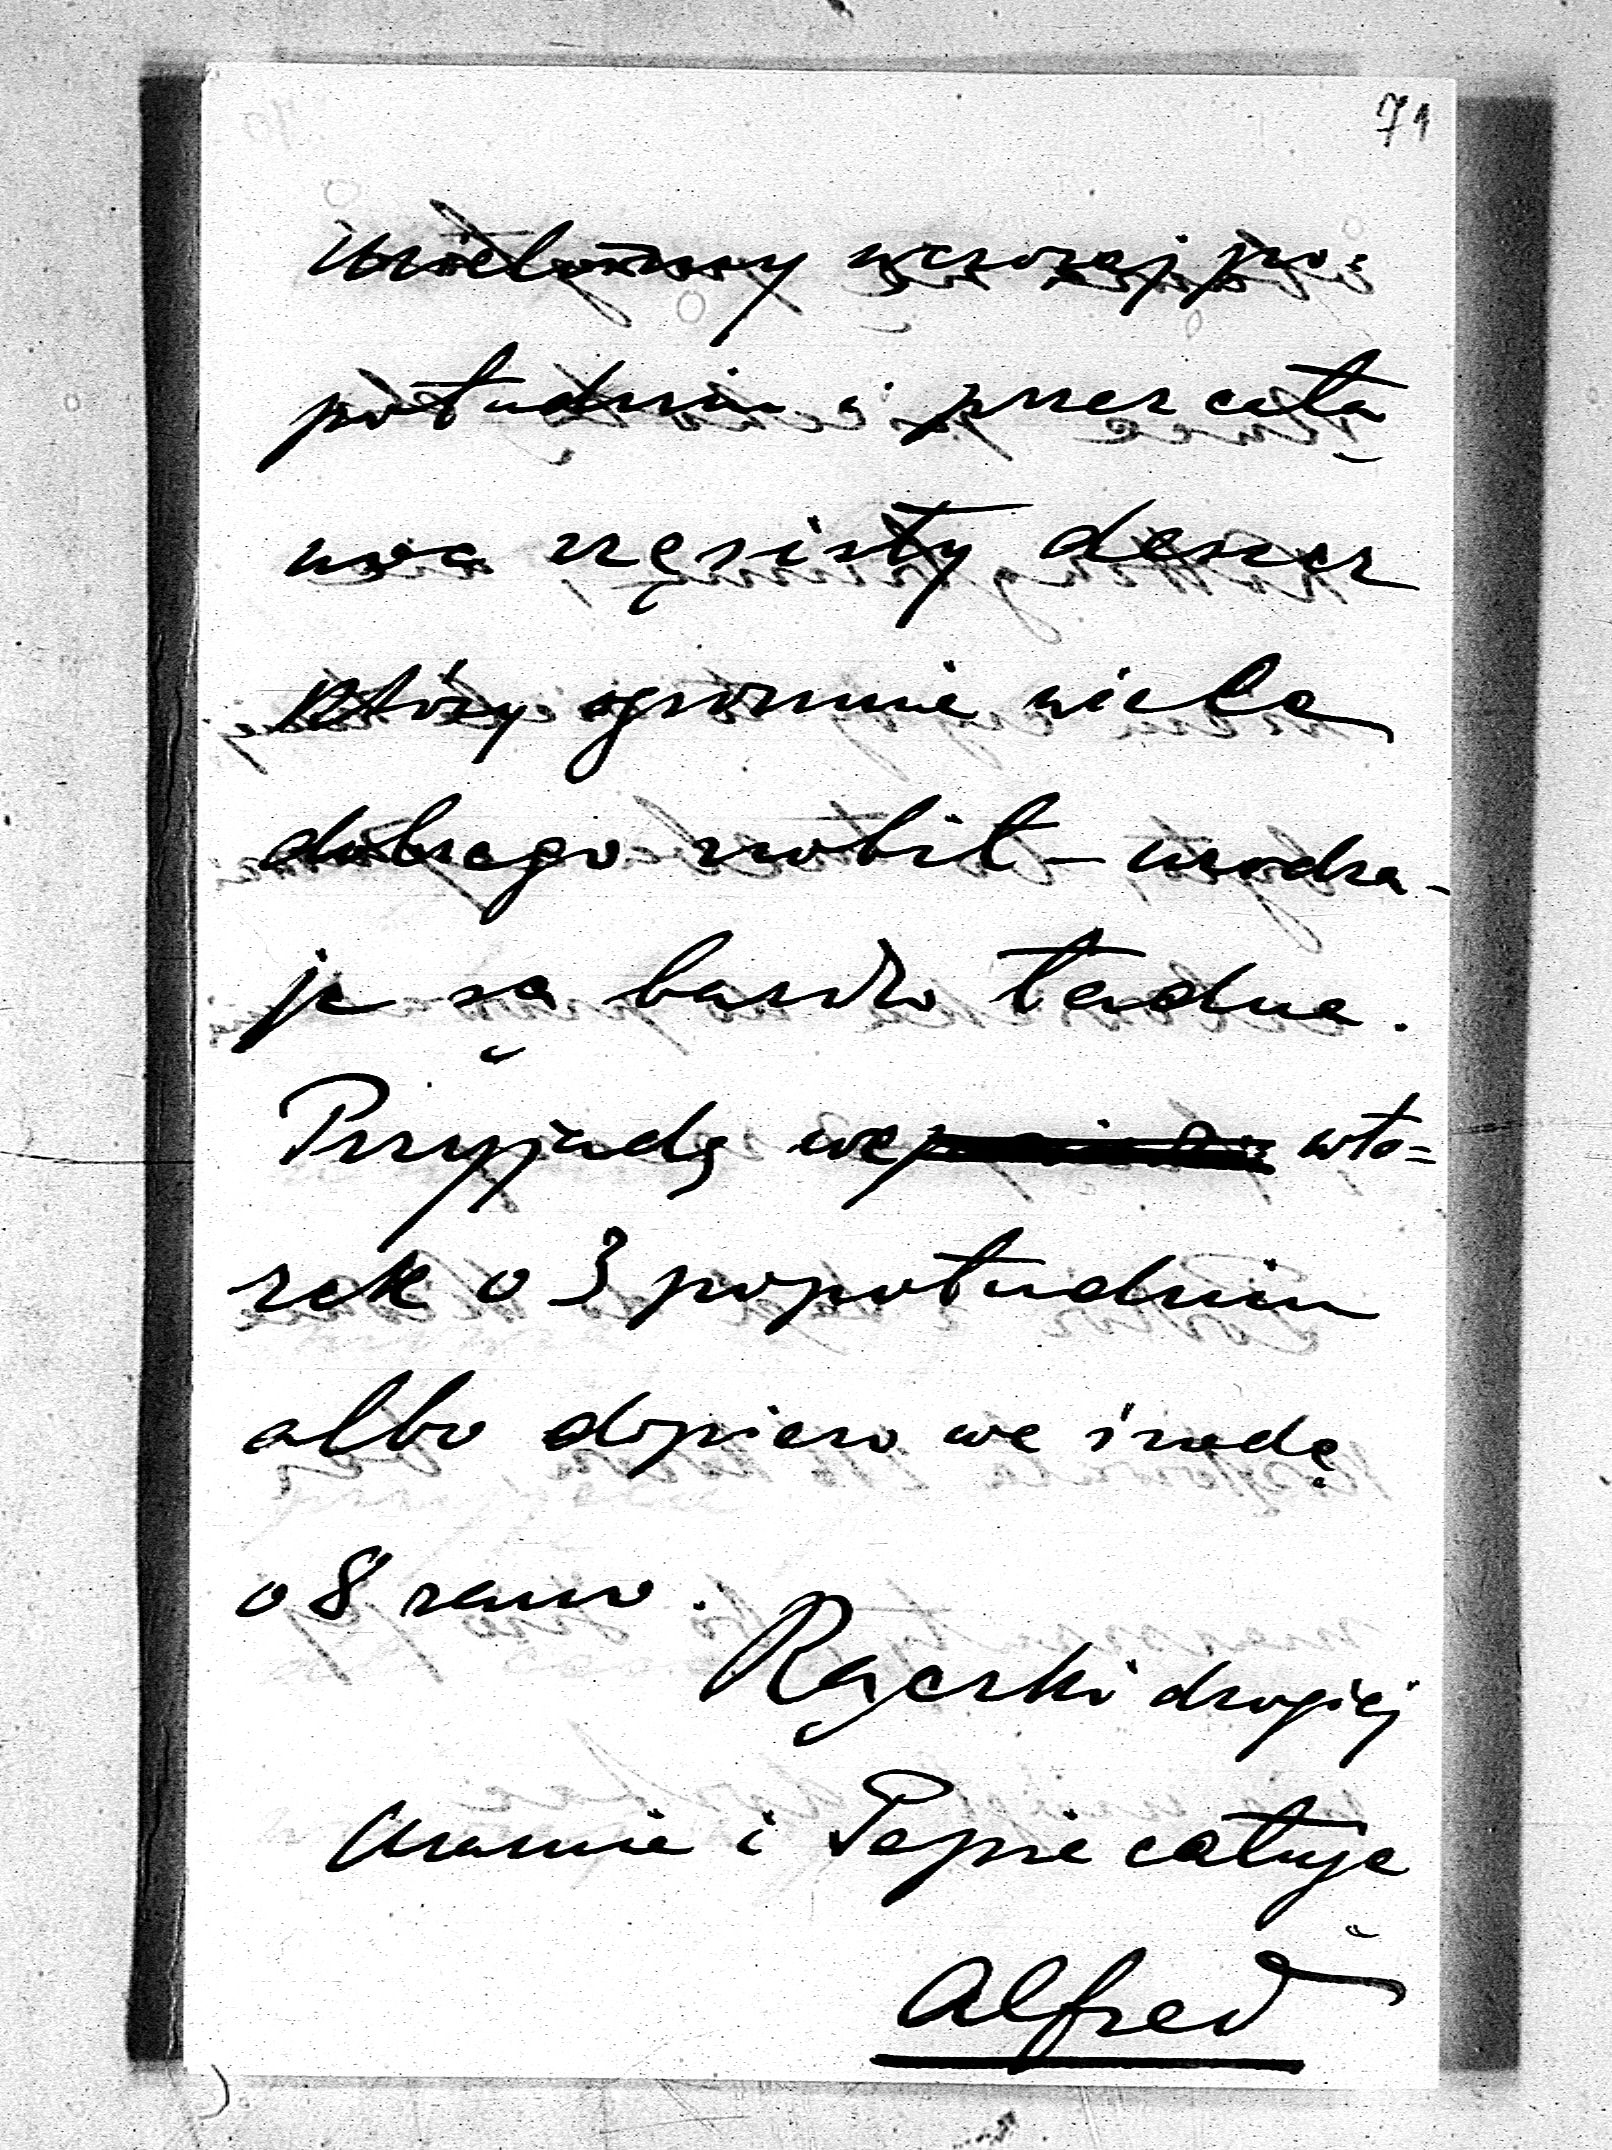 71
Mieliśmy wczoraj po=
południu i przez całą
noc rzęsisty deszcz
który ogromnie wiele
dobrego zrobił – urodza-
je są bardzo ładne.
Przyjadę we wto=
rek o 3 popołudniu
albo dopiero we środę
o 8 rano.
Rączki drogiej
Mamie i Papie całuję
Alfred